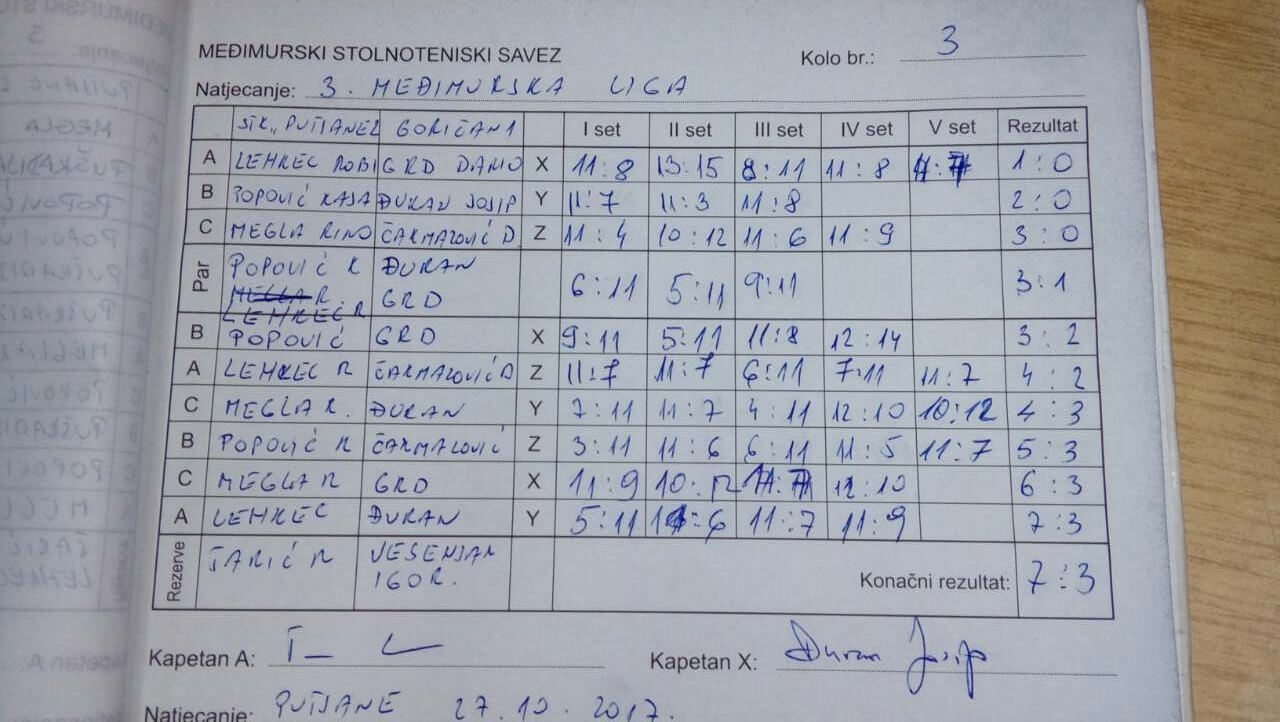 MEĐIMURSKI STOLNOTENISKI SAVEZ Kolo br.: 3
Natjecanje: 3. MEĐIMURSKA LIGA
STK,, PUŠĆANE GORIČAN 1 I set II set III set IV set V set Rezultat
A LEHKEC ROBI GRD DARIO X 11:8 13:15 8:11 11:8 1:0
B POPOVIĆ KAJA ĐURAN JOSIP Y 11:7 11:3 11:8 2:0
C MEGLA RINO ČARMAZOVIĆ D Z 11:4 10:12 11:6 11:9 3:0
Par POPOVIĆ K ĐURAN 6:11 5:11 9:11 3:1
LEHKEC R GRD
B POPOVIĆ GRD X 9:11 5:11 11:8 12:14 3:2
A LEHKEC R ČARMAZOVIĆ D Z 11:7 11:7 6:11 7:11 11:7 4:2
C MEGLA R. ĐURAN Y 7:11 11:7 4:11 12:10 10:12 4:3
B POPOVIĆ K ČARMAZOVIĆ Z 3:11 11:6 6:11 11:5 11:7 5:3
C MEGLA R GRD X 11:9 10:12 12:10 6:3
A LEHKEC ĐURAN Y 5:11 11:6 11:7 11:9 7:3
Rezerve R VESENJAK
IGOR. Konačni rezultat: 7:3
Kapetan A: Kapetan X: Đuran Josip
Natjecanje: 27.10.2017.